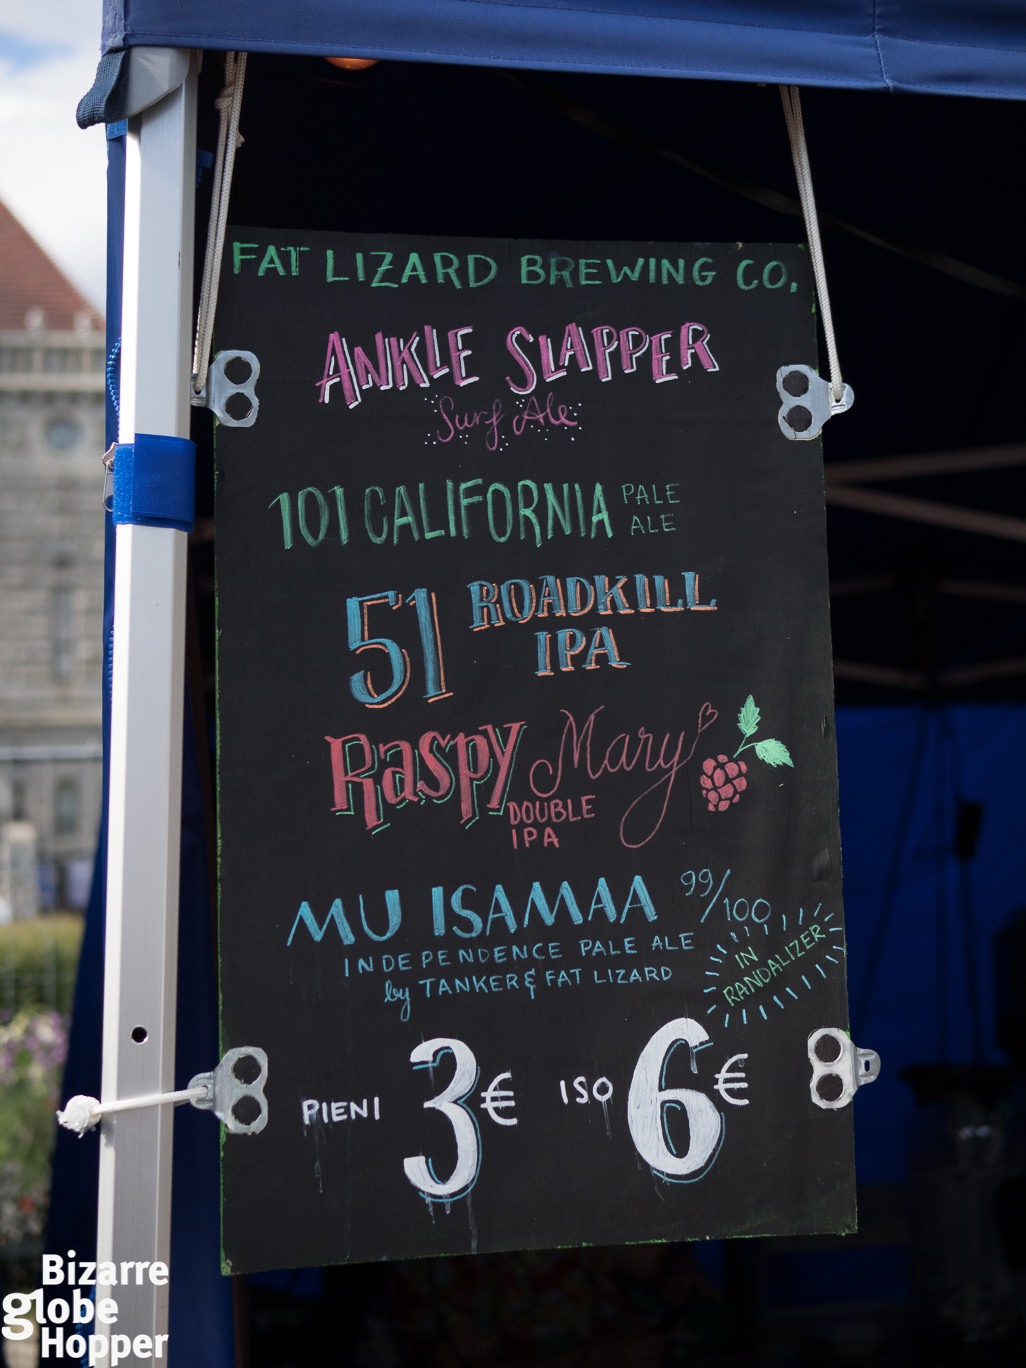 FAT LIZARD BREWING CO.
ANKLE SLAPPER
Surf Ale
101 CALIFORNIA PALE
ALE
51 ROADKILL
IPA
RASPY Mary
DOUBLE
IPA
MU ISAMAA 99/100
INDEPENDENCE PALE ALE
by TANKER & FAT LIZARD
IN
RANDALIZER
PIENI 3€ ISO 6€
Bizarre
globe
Hopper